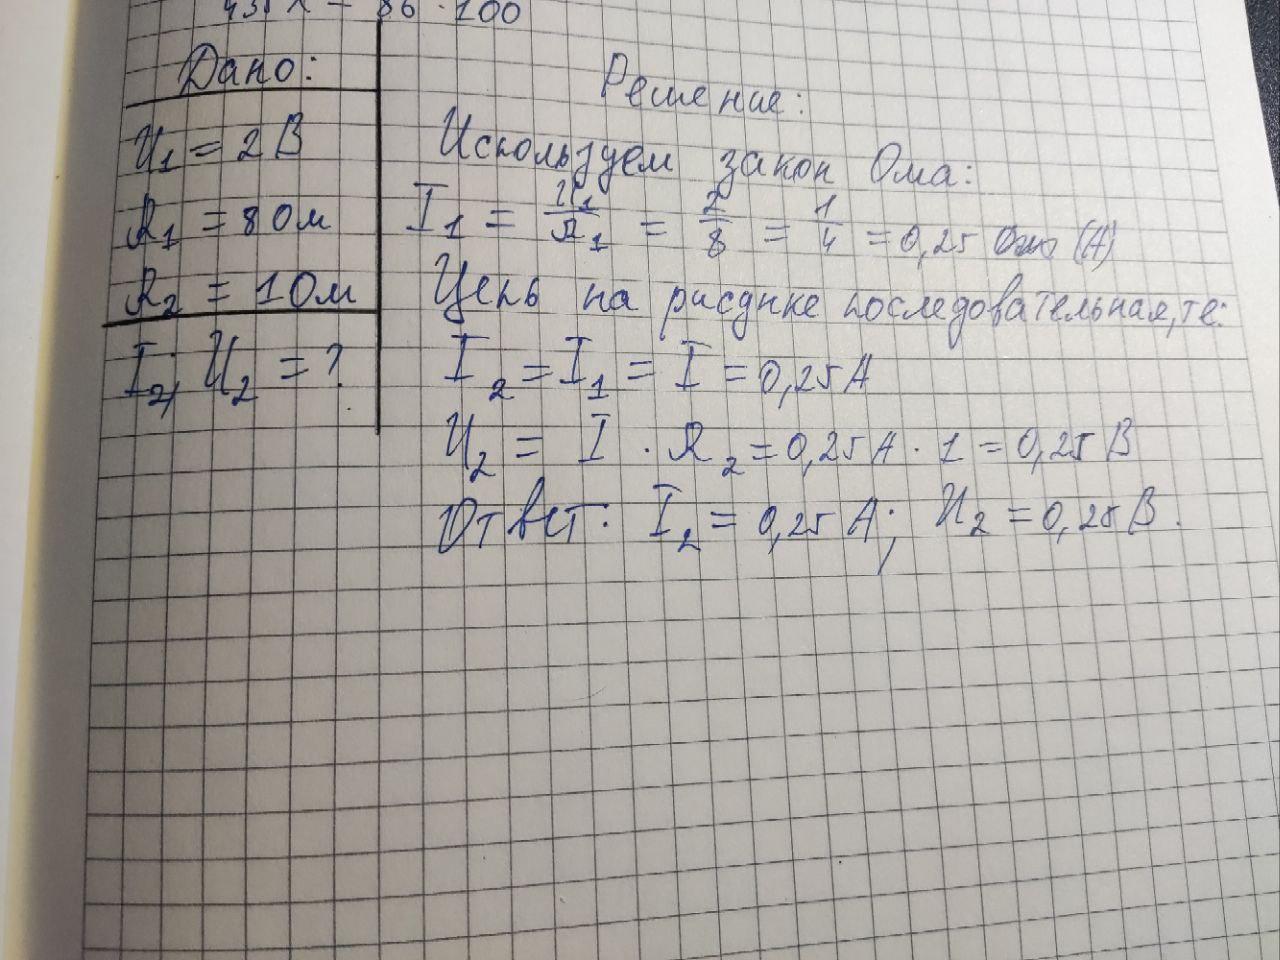 86 · 100
Дано:
U₁ = 2 В
R₁ = 8 Ом
R₂ = 1 Ом
I₂, U₂ = ?
Решение:
Используем закон Ома:
I₁ = U₁/R₁ = 2/8 = 1/4 = 0,25 (А)
Цепь на рисунке последовательная, те:
I₂ = I₁ = I = 0,25 А
U₂ = I · R₂ = 0,25 А · 1 = 0,25 В
Ответ: I₂ = 0,25 А; U₂ = 0,25 В.